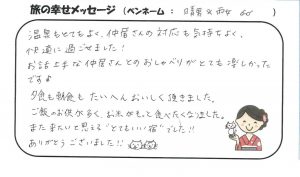 旅の幸せメッセージ (ペンネーム: 晴男&雨女 60)
温泉もとてもよく、仲居さんの対応も気持ちよく、
快適に過ごせました!
お話上手な仲居さんとのおしゃべりがとても楽しかった
ですよ
夕食も朝食もたいへんおいしく頂きました。
ご飯のお供が多く、お米がもっと食べたくなりました。
また来たいと思える"とてもいい宿"でした!!
ありがとうございました!!